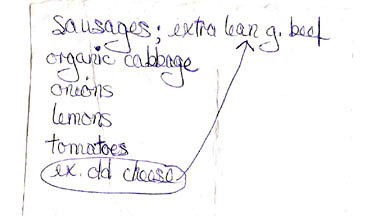 sausages; extra lean g. beef
organic cabbage
onions
lemons
tomatoes
ex. old cheese